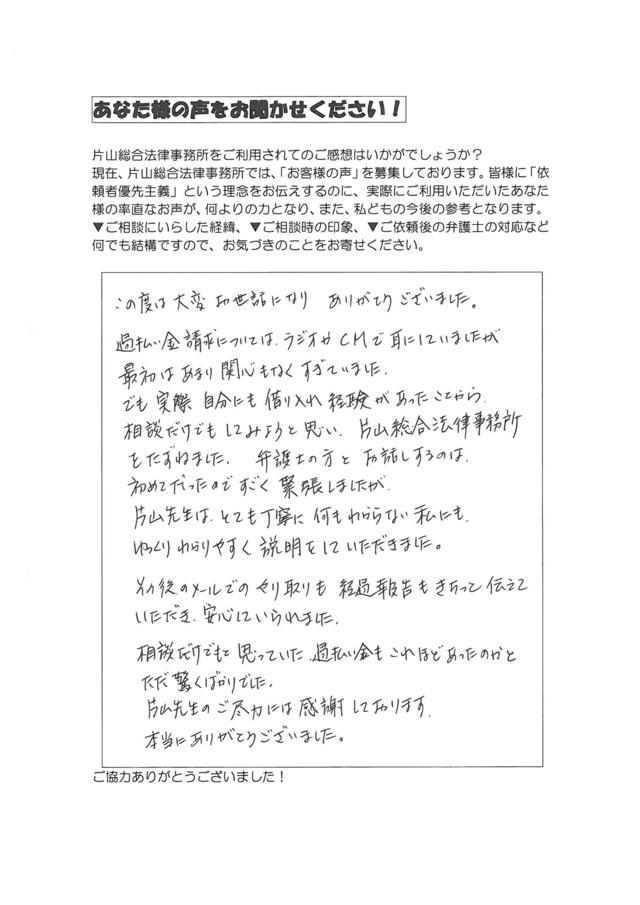 あなた様の声をお聞かせください！
片山総合法律事務所をご利用されてのご感想はいかがでしょうか？
現在、片山総合法律事務所では、「お客様の声」を募集しております。皆様に「依
頼者優先主義」という理念をお伝えするのに、実際にご利用いただいたあなた
様の率直なお声が、何よりの力となり、また、私どもの今後の参考となります。
▼ご相談にいらした経緯、▼ご相談時の印象、▼ご依頼後の弁護士の対応など
何でも結構ですので、お気づきのことをお寄せください。
この度は大変お世話になり ありがとうございました。
過払い金請求については、ラジオやCMで耳にしていましたが
最初はあまり関心もなくすぎていました。
でも実際 自分にも借り入れ経験があったことから、
相談だけでもしてみようと思い、片山総合法律事務所
をたずねました。 弁護士の方とお話しするのは、
初めてだったのですごく緊張しましたが、
片山先生は、とても丁寧に何もわからない私にも、
ゆっくりわかりやすく説明をしていただきました。
その後のメールでのやり取りも 経過報告もきちっと伝えて
いただき、安心していられました。
相談だけでもと思っていた、過払い金もこれほどあったのかと
ただ驚くばかりでした。
片山先生のご尽力には感謝しております。
本当にありがとうございました。
ご協力ありがとうございました！